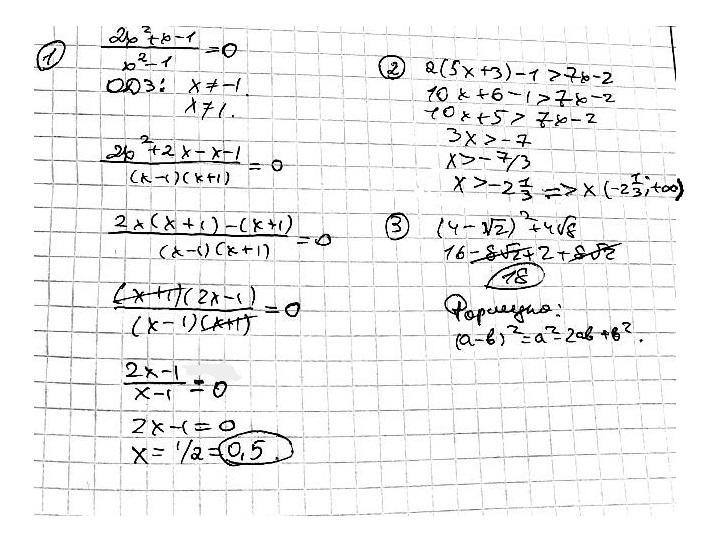 ① (2x²+x-1)/(x²-1) = 0
ОДЗ: x ≠ -1.
x ≠ 1.
(2x²+2x-x-1)/((x-1)(x+1)) = 0
(2x(x+1)-(x+1))/((x-1)(x+1)) = 0
((x+1)(2x-1))/((x-1)(x+1)) = 0
(2x-1)/(x-1) = 0
2x-1=0
x = 1/2 = 0,5.
② 2(5x+3)-1>7x-2
10x+6-1>7x-2
10x+5>7x-2
3x>-7
x>-7/3
x>-2 1/3 => x (-2 1/3; +∞)
③ (4-√2)²+4√8
16-8√2+2+8√2
18
Формула:
(a-b)²=a²-2ab+b².